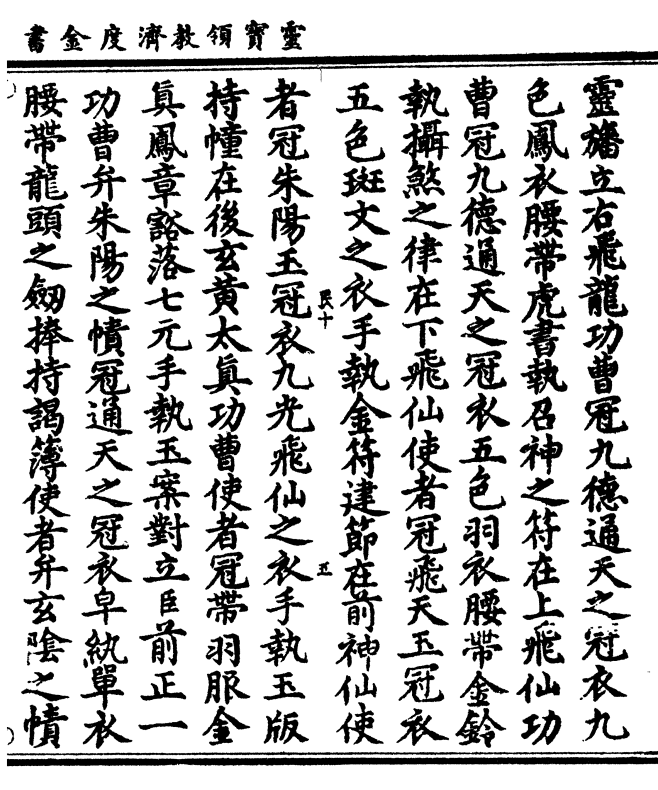 靈寶領教濟度金書
靈旛立右飛龍功曹冠九德通天之冠衣九
色鳳衣腰帶虎書執召神之符在上飛仙功
曹冠九德通天之冠衣五色羽衣腰帶金鈴
執攝煞之律在下飛仙使者冠飛天玉冠衣
五色斑文之衣手執金符建節在前神仙使
民十 五
者冠朱陽玉冠衣九光飛仙之衣手執玉版
持幢在後玄黃太眞功曹使者冠帶羽服金
眞鳳章豁落七元手執玉案對立臣前正一
功曹弁朱陽之幘冠通天之冠衣皁紈單衣
腰帶龍頭之劒捧持謁簿使者弁玄陰之幘